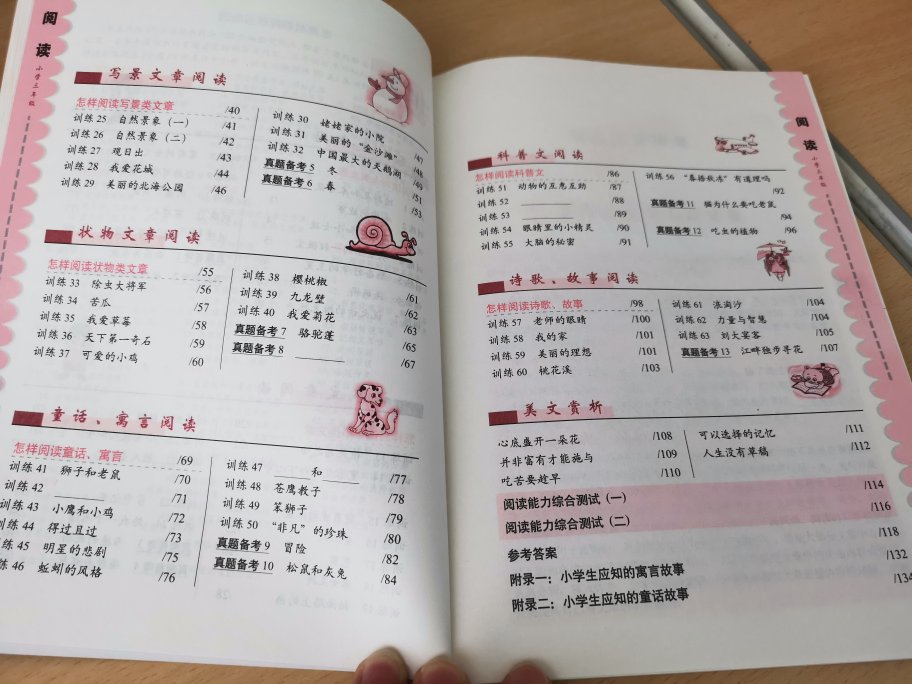 阅
读
小学三年级
写景文章阅读
怎样阅读写景类文章 /40
训练25 自然景象（一） /41
训练26 自然景象（二） /42
训练27 观日出 /43
训练28 我爱花城 /44
训练29 美丽的北海公园 /46
训练30 姥姥家的小院 /47
训练31 美丽的“金沙滩” /48
训练32 中国最大的天鹅湖 /49
真题备考5 冬 /51
真题备考6 春 /53
状物文章阅读
怎样阅读状物类文章 /55
训练33 除虫大将军 /56
训练34 苦瓜 /57
训练35 我爱草莓 /58
训练36 天下第一奇石 /59
训练37 可爱的小鸡 /60
训练38 樱桃椒 /61
训练39 九龙壁 /62
训练40 我爱菊花 /63
真题备考7 骆驼蓬 /65
真题备考8 ______ /67
童话、寓言阅读
怎样阅读童话、寓言 /69
训练41 狮子和老鼠 /70
训练42 ______ /71
训练43 小鹰和小鸡 /72
训练44 得过且过 /73
训练45 明星的悲剧 /75
训练46 蚯蚓的风格 /76
训练47 ____和____ /77
训练48 苍鹰教子 /78
训练49 笨狮子 /79
训练50 “非凡”的珍珠 /80
真题备考9 冒险 /82
真题备考10 松鼠和灰兔 /84
阅
读
小学三年级
科普文阅读
怎样阅读科普文 /86
训练51 动物的互惠互助 /87
训练52 ______ /88
训练53 ______ /89
训练54 眼睛里的小精灵 /90
训练55 大脑的秘密 /91
训练56 “春捂秋冻”有道理吗 /92
真题备考11 猫为什么要吃老鼠 /94
真题备考12 吃虫的植物 /96
诗歌、故事阅读
怎样阅读诗歌、故事 /98
训练57 老师的眼睛 /100
训练58 我的家 /101
训练59 美丽的理想 /101
训练60 桃花溪 /103
训练61 浪淘沙 /104
训练62 力量与智慧 /104
训练63 刘大宴客 /105
真题备考13 江畔独步寻花 /107
美文赏析
心底盛开一朵花 /108
并非富有才能施与 /109
吃苦要趁早 /110
可以选择的记忆 /111
人生没有草稿 /112
阅读能力综合测试（一） /114
阅读能力综合测试（二） /116
参考答案 /118
附录一：小学生应知的寓言故事 /132
附录二：小学生应知的童话故事 /134